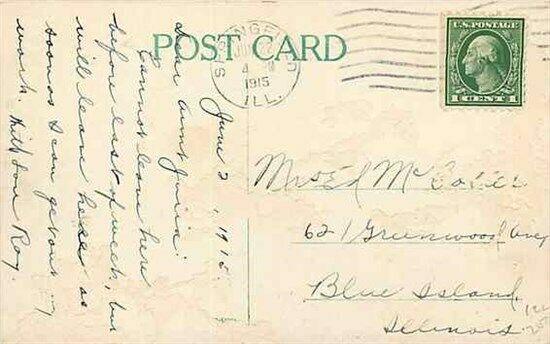 POST CARD
SPRINGFIELD
JUN 2
4
1915
ILL.
U.S. POSTAGE
1 CENT 1
June 2, 1915.
Dear Aunt
Cannot leave here
before last of week, but
will leave here as
soon as I can get out of
work. With Love Roy.
Mc
621 Greenwood Ave
Blue Island,
Illinois